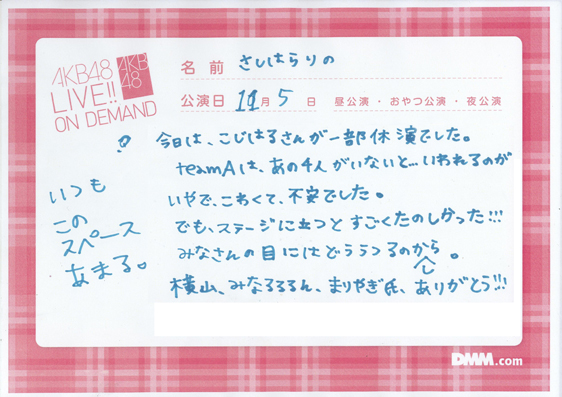 AKB48
LIVE!!
ON DEMAND
AKB
48
名前 さしはらりの
公演日 11月5日 昼公演・おやつ公演・夜公演
今日は、こじはるさんが一部休演でした。
teamAは、あの4人がいないと…いわれるのが
いやで、こわくて、不安でした。
でも、ステージに立つとすごくたのしかった!!!
みなさんの目にはどううつるのかしら。
横山、みなるるるん、まりやぎ氏、ありがとう!!!
いつも
この
スペース
あまる。
DMM.com